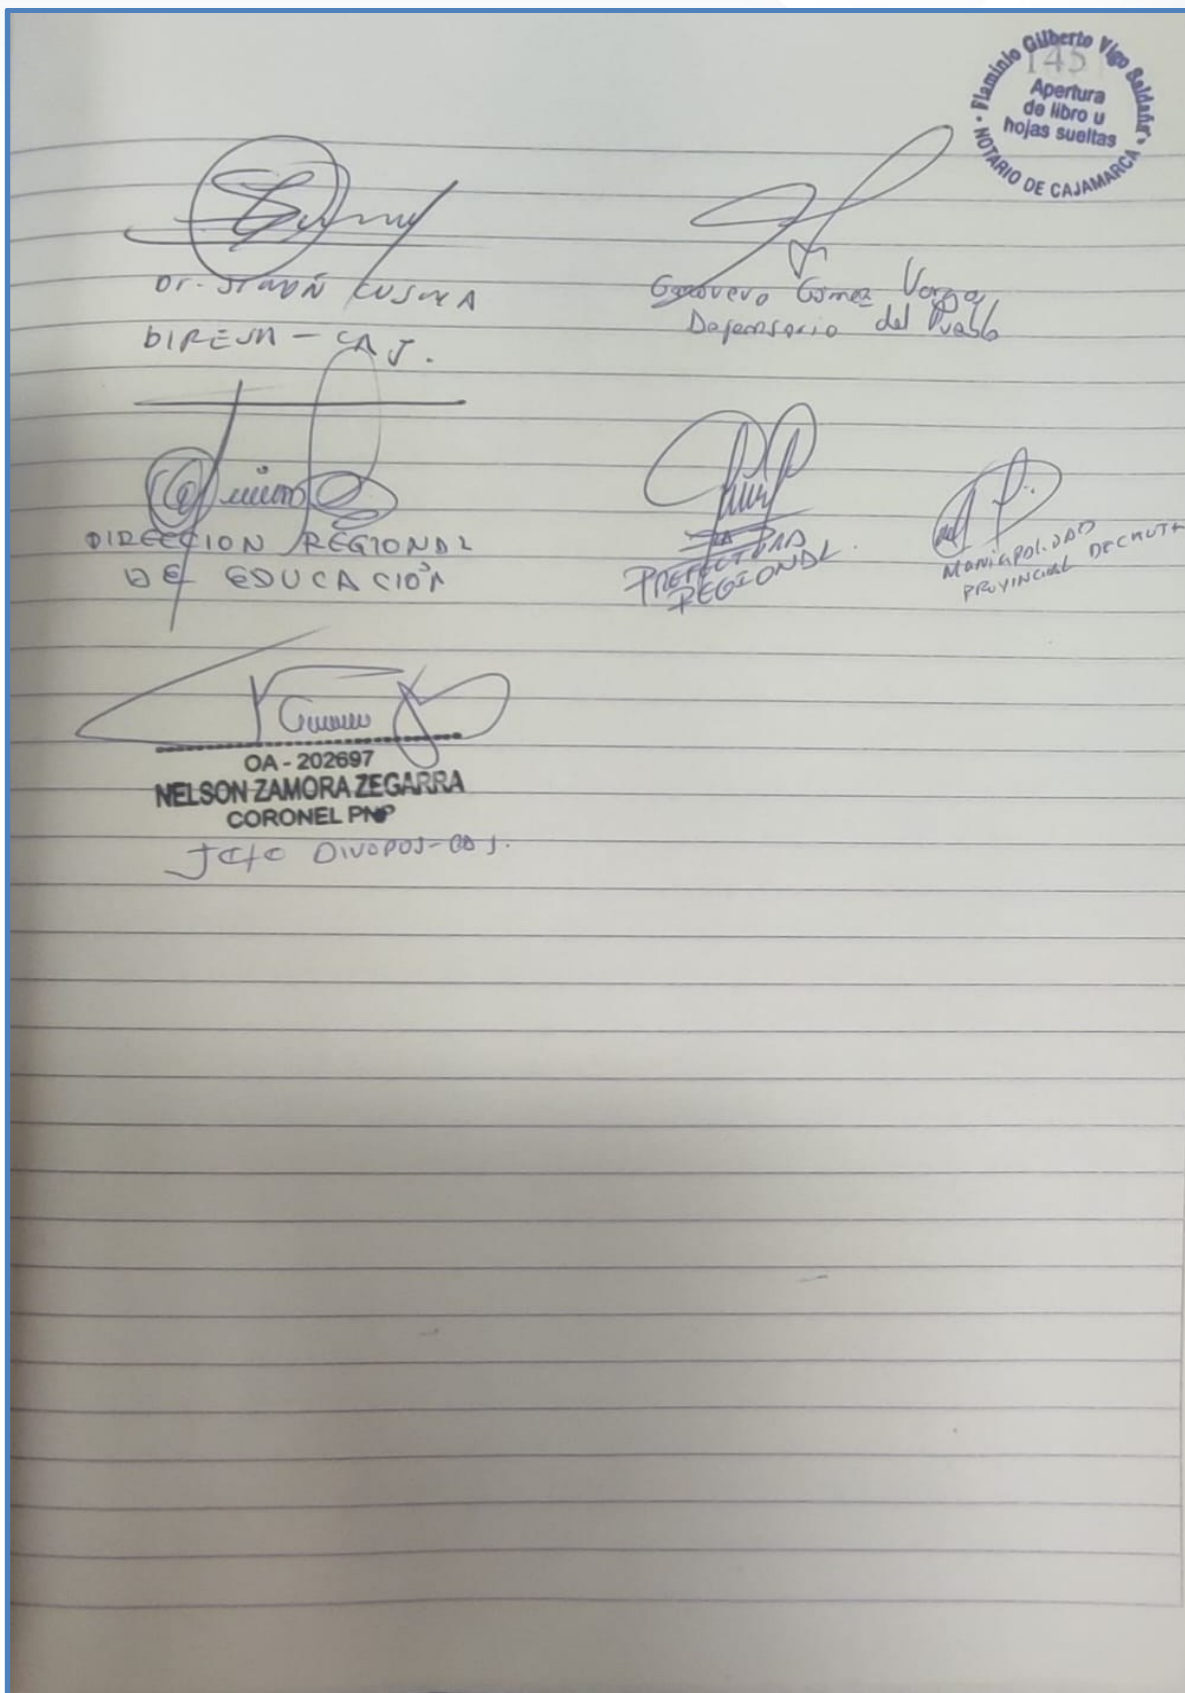 Flaminio Gilberto Vigo Saldaña
145
Apertura
de libro u
hojas sueltas
NOTARIO DE CAJAMARCA
Dr.
DIRESA - CAJ.
Genovevo Gómez Vargas
Defensoria del Pueblo
DIRECCION REGIONAL
DE EDUCACIÓN
PREFECTURA
REGIONAL
PROVINCIAL DE CHOTA
OA - 202697
NELSON ZAMORA ZEGARRA
CORONEL PNP